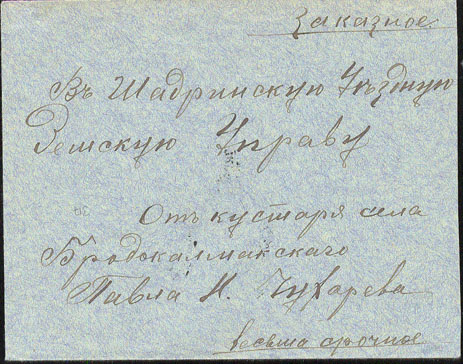 Заказное
Въ Шадринскую Уѣздную
Земскую Управу
Отъ кустаря села
Бродокалмакскаго
Павла И. Чухарева
весьма срочное